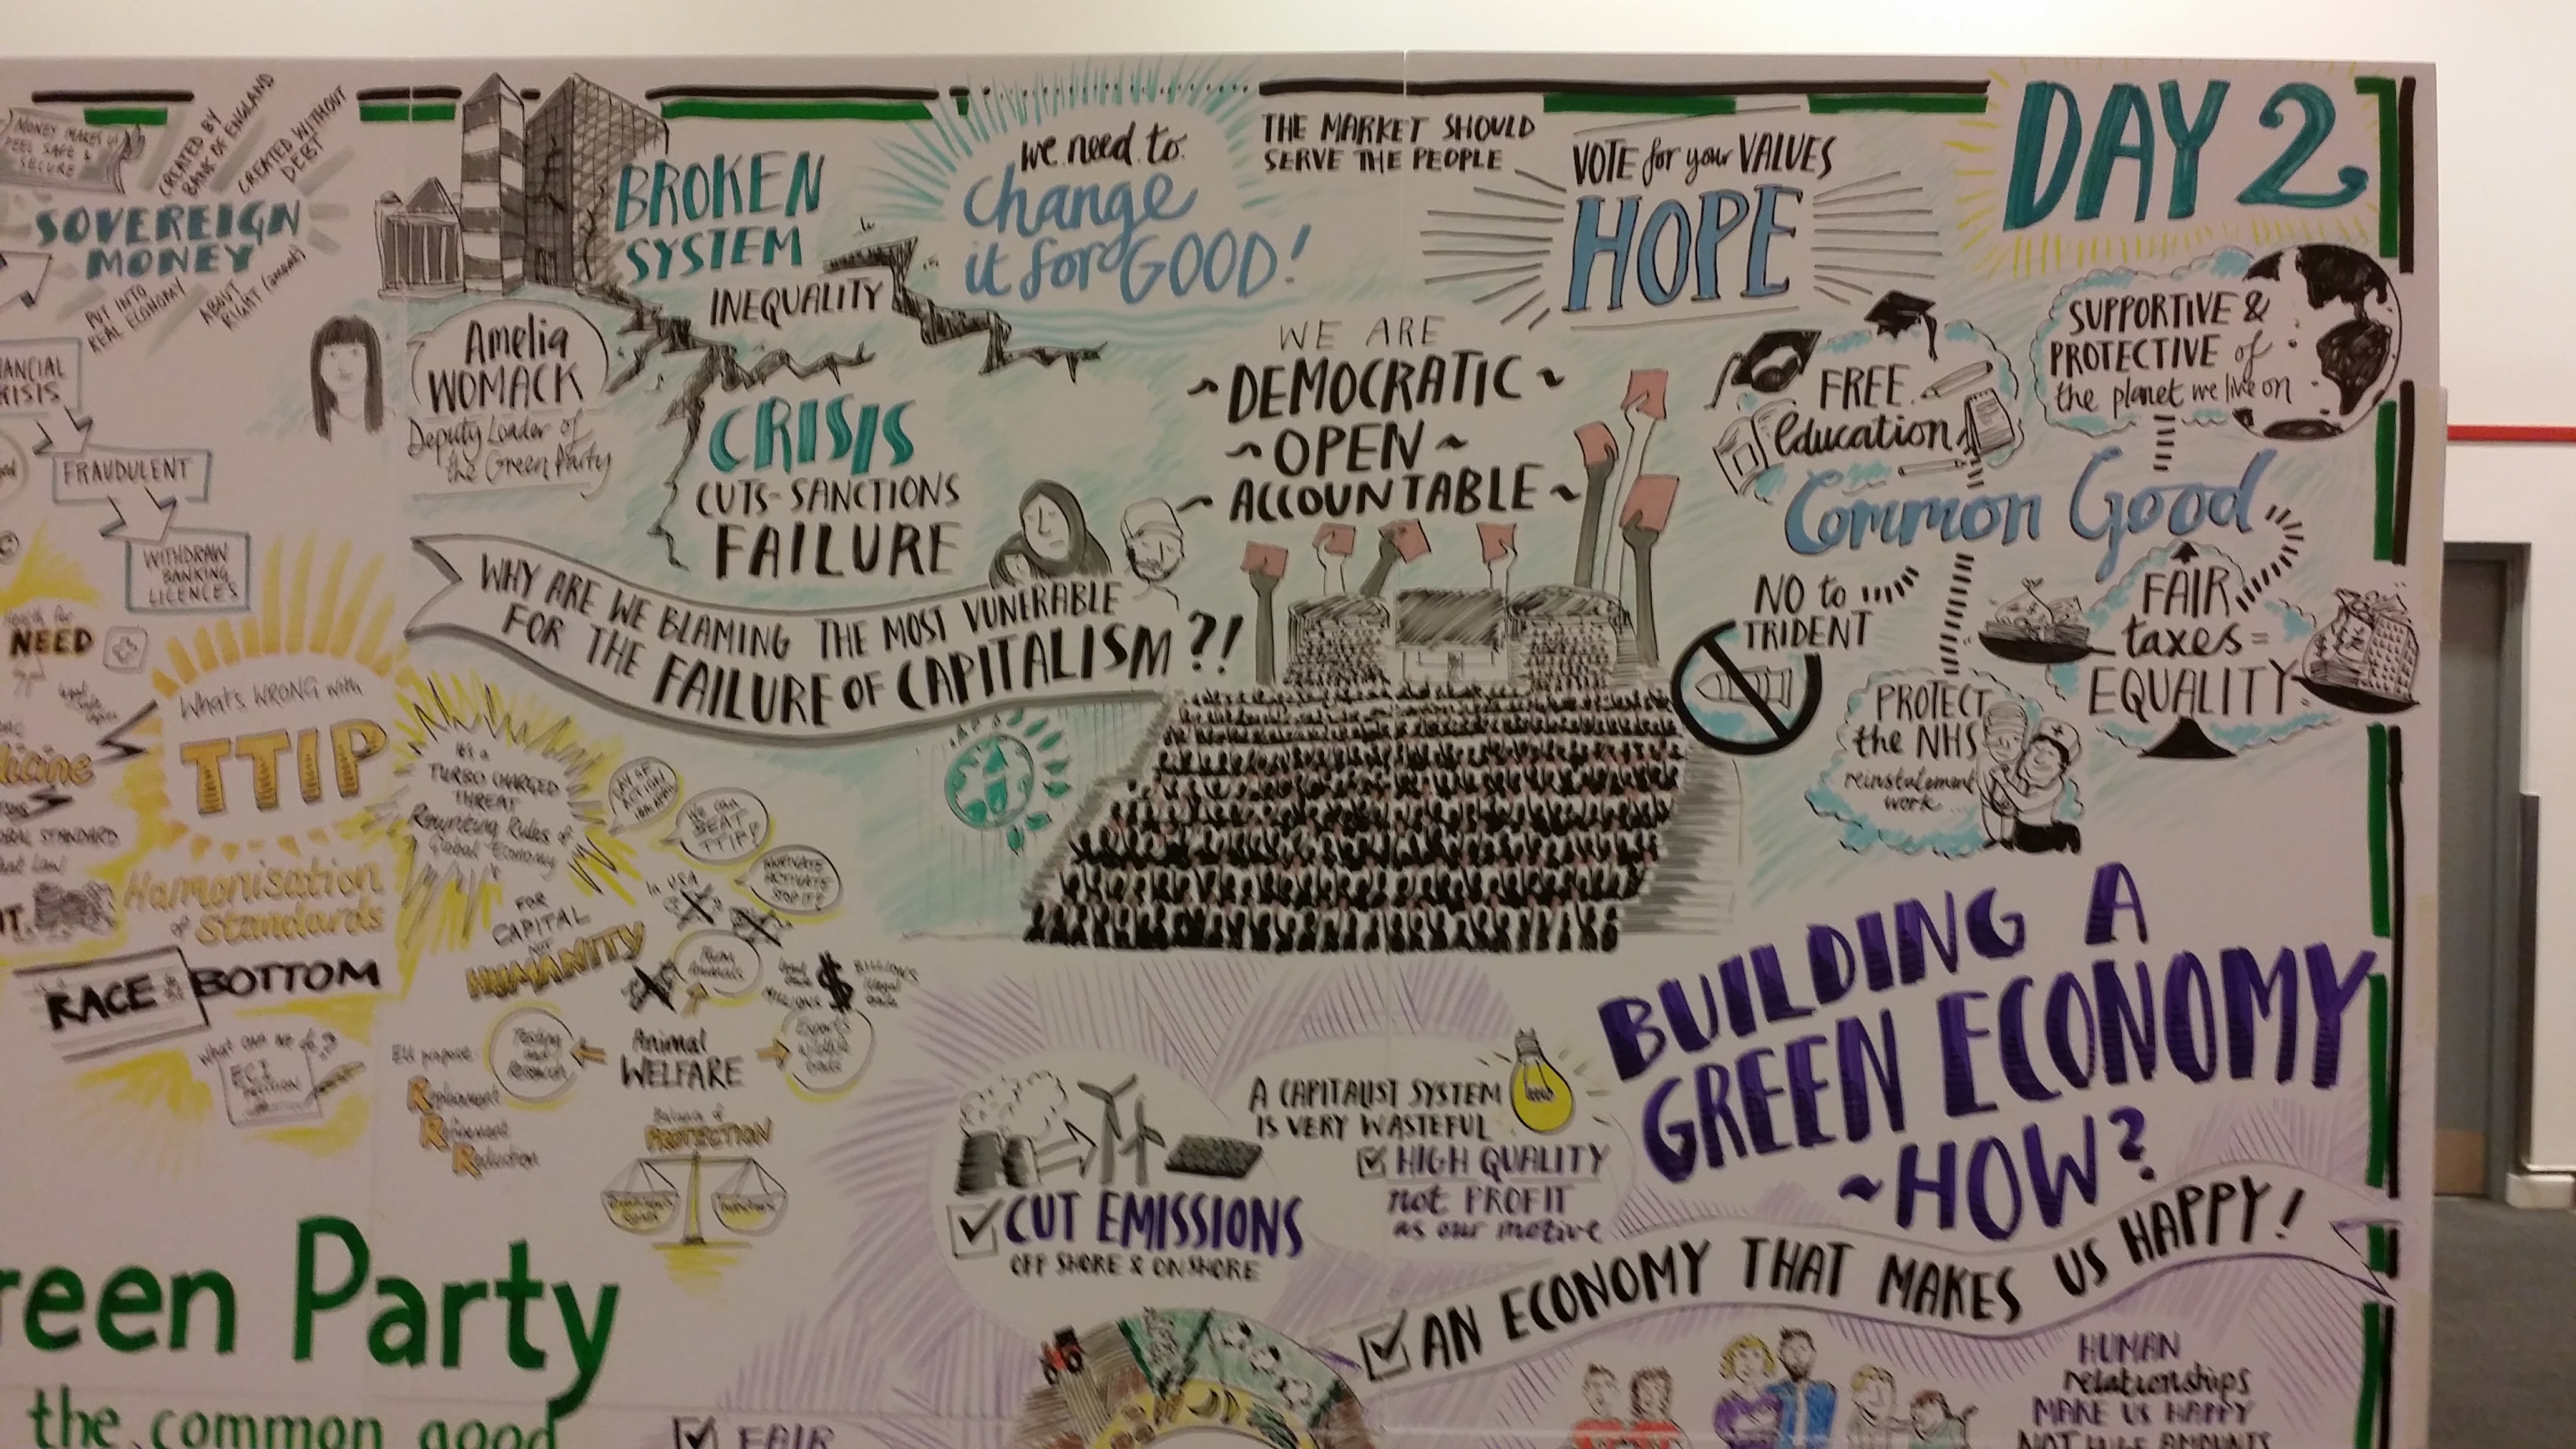 MONEY MAKES US
FEEL SAFE &
SECURE
CREATED BY
BANK OF ENGLAND
CREATED WITHOUT
DEBT
SOVEREIGN
MONEY
PUT INTO
REAL ECONOMY
ABOUT
RIGHT (amount)
FRAUDULENT
WITHDRAW
BANKING
LICENCES
NEED
BROKEN
SYSTEM
INEQUALITY
Amelia
WOMACK
Deputy Leader of
the Green Party
CRISIS
CUTS-SANCTIONS
FAILURE
we need to
change
it for GOOD!
THE MARKET SHOULD
SERVE THE PEOPLE
VOTE for your VALUES
HOPE
DAY 2
WE ARE
~DEMOCRATIC~
~OPEN~
~ACCOUNTABLE~
WHY ARE WE BLAMING THE MOST VUNERABLE
FOR THE FAILURE OF CAPITALISM?!
FREE
education
SUPPORTIVE &
PROTECTIVE of
the planet we live on
Common Good
NO to
TRIDENT
FAIR
taxes=
EQUALITY
PROTECT
the NHS
reinstatement
work
What's WRONG with
TTIP
It's a
TURBO CHARGED
THREAT
Rewriting Rules of
Global Economy
DAY OF
ACTION
We can
BEAT
TTIP!
Harmonisation
of Standards
RACE BOTTOM
FOR
CAPITAL
NOT
HUMANITY
In USA
Farm
Animals
Animal
WELFARE
Testing
and
Research
Replacement
Refinement
Reduction
Balance of
PROTECTION
BUILDING A
GREEN ECONOMY
~HOW?
A CAPITALIST SYSTEM
IS VERY WASTEFUL
HIGH QUALITY
not PROFIT
as our motive
CUT EMISSIONS
OFF SHORE & ON SHORE
AN ECONOMY THAT MAKES US HAPPY!
HUMAN
relationships
MAKE US HAPPY
NOT HUGE AMOUNTS
reen Party
the common good
FAIR